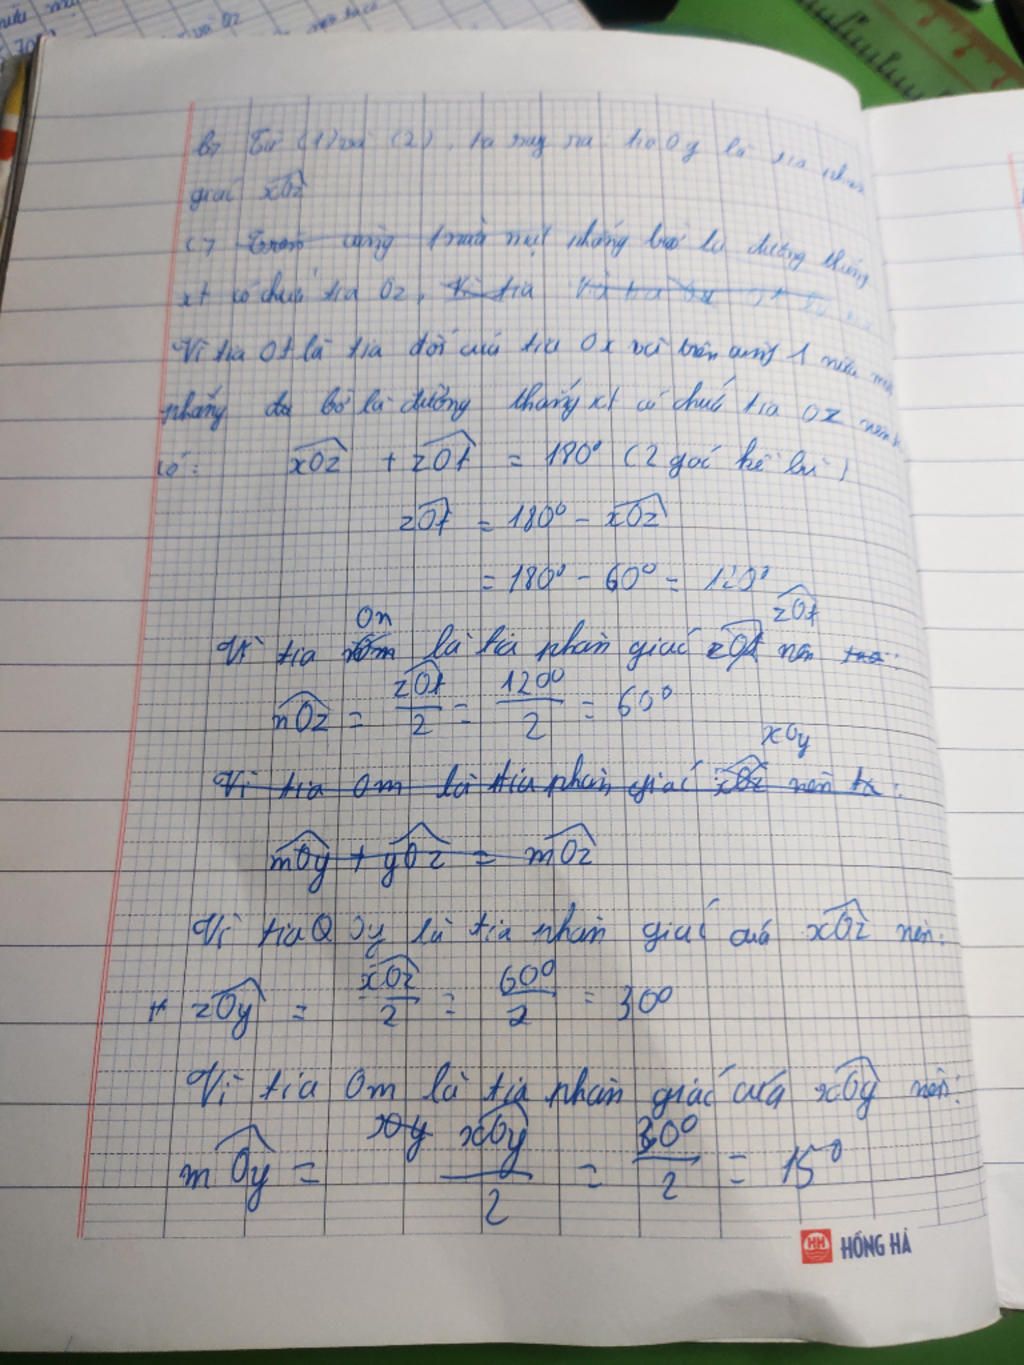 b, Từ (1) và (2), ta suy ra: tia Oy là tia phân
giác xOz
c, Trên cùng 1 nửa mặt phẳng bờ là đường thẳng
xt có chứa tia Oz, Vì tia
Vì tia Ot là tia đối của tia Ox và trên cùng 1 nửa mặt
phẳng bờ là đường thẳng xt có chứa tia Oz nên
có: xOz + zOt = 180° (2 góc kề bù)
zOt = 180° - xOz
= 180° - 60° = 120°
On zOt
Vì tia xOm là tia phân giác zOt nên ta:
nOz = zOt/2 = 120°/2 = 60°
xOy
Vì tia Om là tia phân giác xOz nên ta:
mOy + yOz = mOz
Vì tia Oy là tia phân giác của xOz nên:
zOy = xOz/2 = 60°/2 = 30°
Vì tia Om là tia phân giác của xOy nên:
mOy = xOy xOy/2 = 30°/2 = 15°
HH HỒNG HÀ